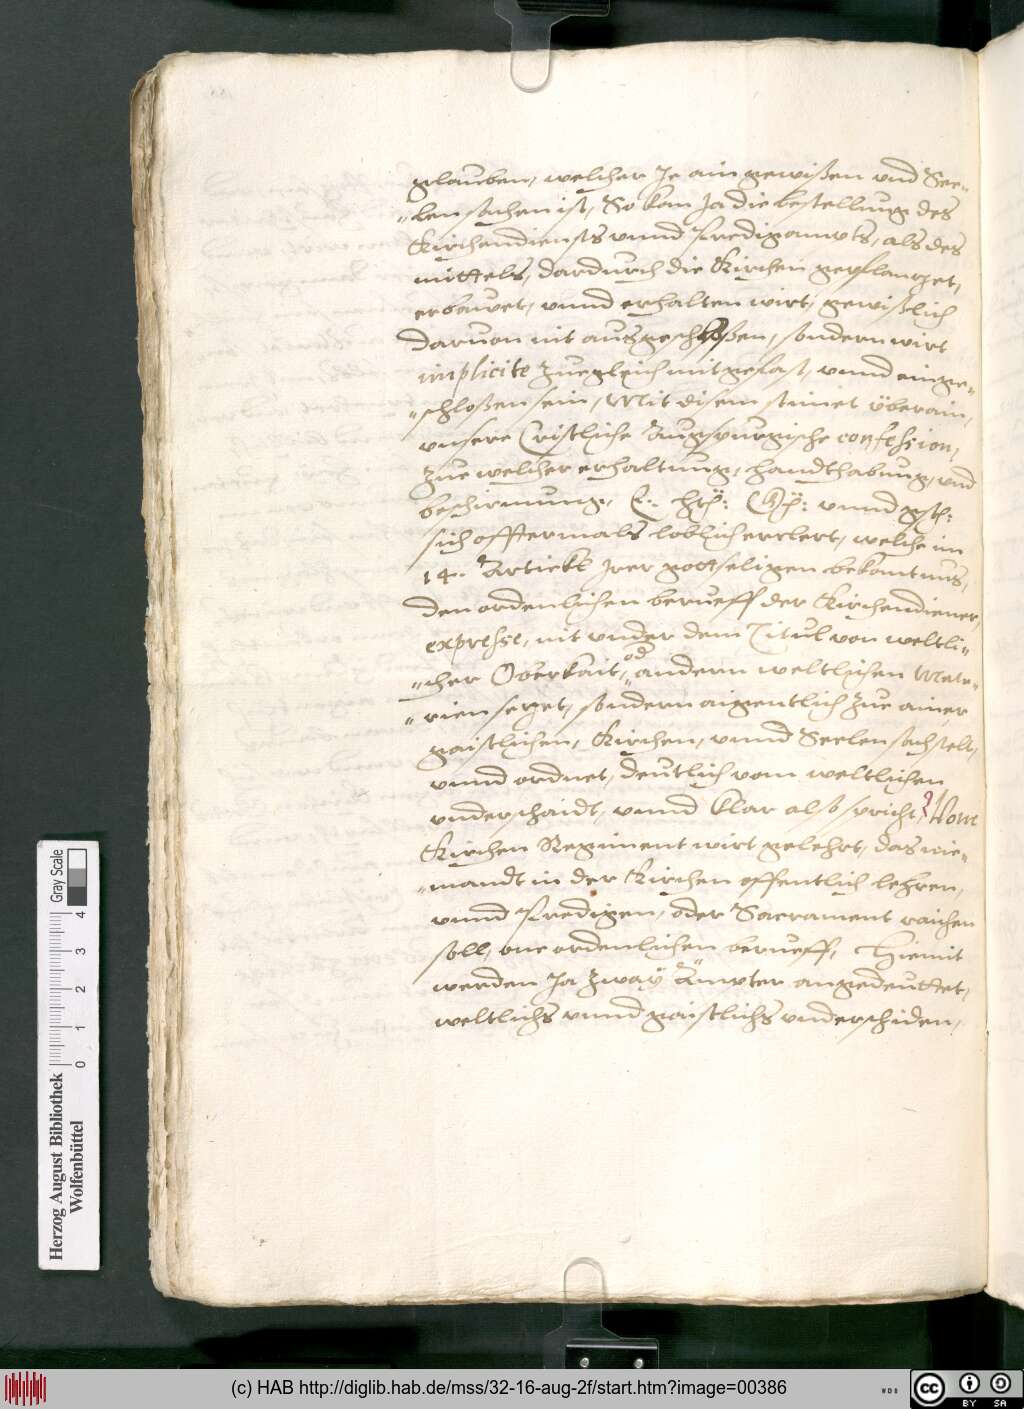 glauben, welcher Je ain gewißen vnd See=
=len sachen ist, So kan Ja die bestellung des
Kirchendiensts vnnd Predigampts, als des
mittels, dardurch die Kirchen gepflantzet,
erbawet, vnnd erhalten wirt, gewißlich
daruon nit ausgeschloßen, sondern wirt
implicite zuegleich mitgefast, vnnd einge=
=schloßen sein, Mit disem stimet überain,
vnsere Cristliche Augspurgische confession,
Zue welcher erhaltung, handthabung, vnd
beschirmung, E.
sich offtermals loblich erclert, welche im
14. Artickl jrer gottseligen bekantnus,
den ordenlichen berueff der Kirchendiener,
expresse, nit vnder dem Titul von weltli=
=cher Oberkait, od andern weltlichen Mate=
=rien setzet, sondern aigentlich zue ainer
gaistlichen, Kirchen, vnnd Seelen sach stelt,
vnnd ordnet, deutlich vom weltlichen
vnderschaidt, vnnd klar also spricht, Vom
Kirchen Regiment wirt gelehrt, das nie=
=mandt in der Kirchen offentlich lehren,
vnnd Predigen, oder Sacrament raichen
soll, one ordenlichen berueff, Hiemit
werden Ja zway Ämpter angedeuttet,
weltlichs vnnd gaistlichs vnderschiden,
Herzog August Bibliothek
Wolfenbüttel
0 1 2 3 4
Gray Scale
(c) HAB http://diglib.hab.de/mss/32-16-aug-2f/start.htm?image=00386
WDB
cc BY SA